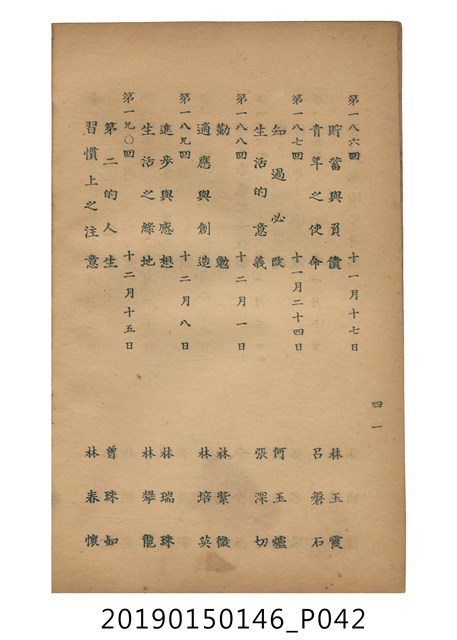 第一八六回 十一月十七日
貯蓄與負債 林玉霞
青年之使命 呂磐石
第一八七回 十一月二十四日
知過必改 何玉爐
生活的意義 張深切
第一八八回 十二月一日
勤勉 林紫薇
適應與創造 林培英
第一八九回 十二月八日
進步與感想 林瑞珠
生活之綠地 林攀龍
第一九〇回 十二月十五日
第二的人生 曾珠如
習慣上之注意 林春懷
四一
20190150146_P042